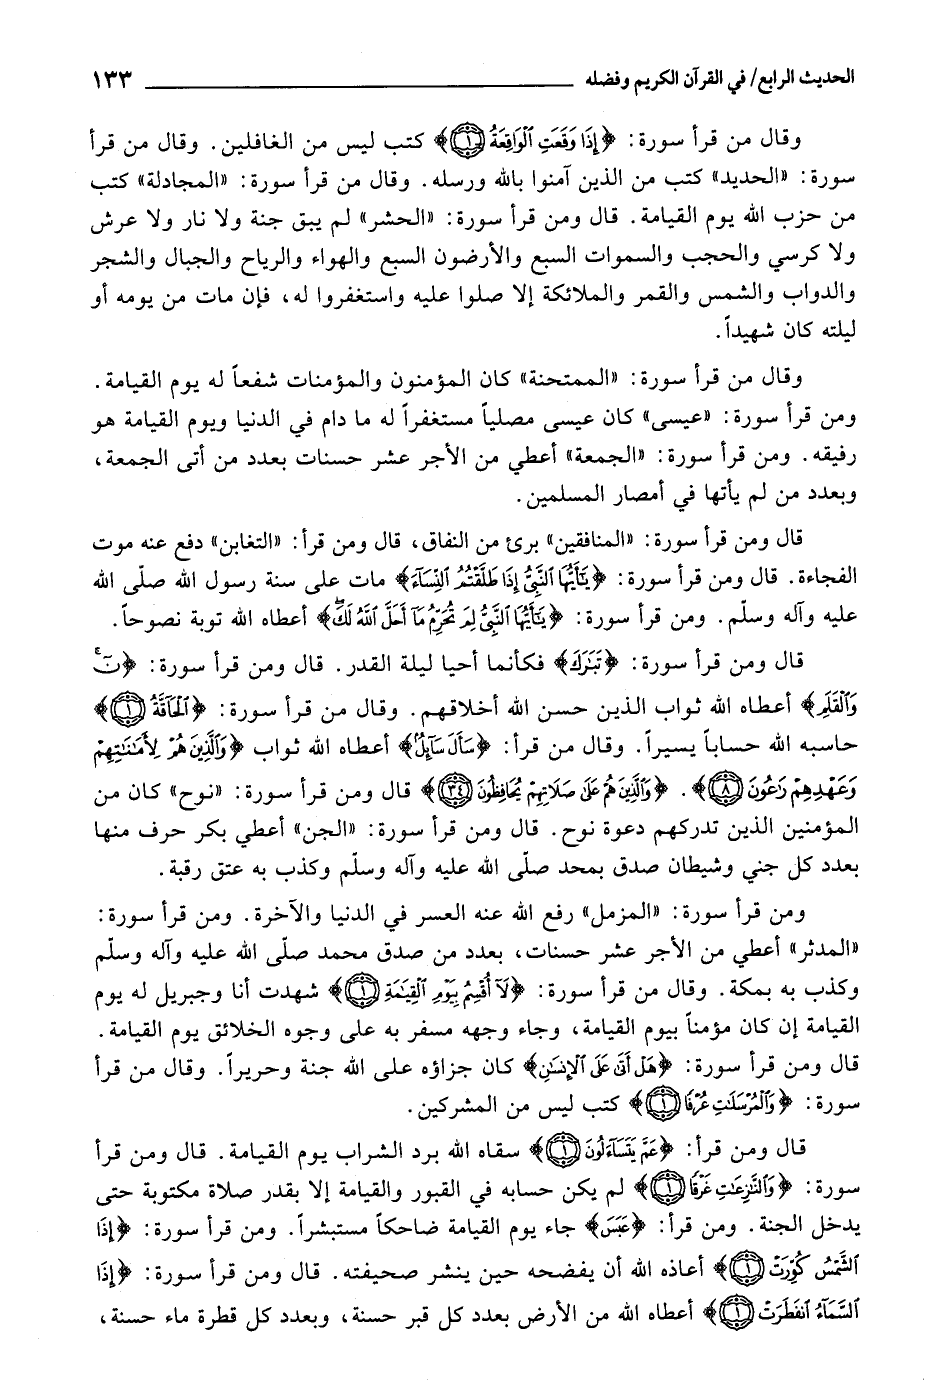 الحديث الرابع/ في القرآن الكريم وفضله ١٣٣
وقال من قرأ سورة: ﴿إِذَا وَقَعَتِ ٱلْوَاقِعَةُ ١﴾ كتب ليس من الغافلين. وقال من قرأ
سورة: «الحديد» كتب من الذين آمنوا بالله ورسله. وقال من قرأ سورة: «المجادلة» كتب
من حزب الله يوم القيامة. قال ومن قرأ سورة: «الحشر» لم يبق جنة ولا نار ولا عرش
ولا كرسي والحجب والسموات السبع والأرضون السبع والهواء والرياح والجبال والشجر
والدواب والشمس والقمر والملائكة إلا صلوا عليه واستغفروا له، فإن مات من يومه أو
ليلته كان شهيداً.
وقال من قرأ سورة: «الممتحنة» كان المؤمنون والمؤمنات شفعاً له يوم القيامة.
ومن قرأ سورة: «عيسى» كان عيسى مصلياً مستغفراً له ما دام في الدنيا ويوم القيامة هو
رفيقه. ومن قرأ سورة: «الجمعة» أعطي من الأجر عشر حسنات بعدد من أتى الجمعة،
وبعدد من لم يأتها في أمصار المسلمين.
قال ومن قرأ سورة: «المنافقين» برئ من النفاق، قال ومن قرأ: «التغابن» دفع عنه موت
الفجاءة. قال ومن قرأ سورة: ﴿يَٰٓأَيُّهَا ٱلنَّبِىُّ إِذَا طَلَّقْتُمُ ٱلنِّسَآءَ﴾ مات على سنة رسول الله صلّى الله
عليه وآله وسلّم. ومن قرأ سورة: ﴿يَٰٓأَيُّهَا ٱلنَّبِىُّ لِمَ تُحَرِّمُ مَآ أَحَلَّ ٱللَّهُ لَكَۖ﴾ أعطاه الله توبة نصوحاً.
قال ومن قرأ سورة: ﴿تَبَٰرَكَ﴾ فكأنما أحيا ليلة القدر. قال ومن قرأ سورة: ﴿نٓۚ
وَٱلْقَلَمِ﴾ أعطاه الله ثواب الذين حسن الله أخلاقهم. وقال من قرأ سورة: ﴿ٱلْحَآقَّةُ ١﴾
حاسبه الله حساباً يسيراً. وقال من قرأ: ﴿سَأَلَ سَآئِلٌۢ﴾ أعطاه الله ثواب ﴿وَٱلَّذِينَ هُمْ لِأَمَٰنَٰتِهِمْ
وَعَهْدِهِمْ رَٰعُونَ ٨﴾. ﴿وَٱلَّذِينَ هُمْ عَلَىٰ صَلَاتِهِمْ يُحَافِظُونَ ٣٤﴾ قال ومن قرأ سورة: «نوح» كان من
المؤمنين الذين تدركهم دعوة نوح. قال ومن قرأ سورة: «الجن» أعطي بكر حرف منها
بعدد كل جني وشيطان صدق بمحد صلّى الله عليه وآله وسلّم وكذب به عتق رقبة.
ومن قرأ سورة: «المزمل» رفع الله عنه العسر في الدنيا والآخرة. ومن قرأ سورة:
«المدثر» أعطي من الأجر عشر حسنات، بعدد من صدق محمد صلّى الله عليه وآله وسلم
وكذب به بمكة. وقال من قرأ سورة: ﴿لَآ أُقْسِمُ بِيَوْمِ ٱلْقِيَٰمَةِ ١﴾ شهدت أنا وجبريل له يوم
القيامة إن كان مؤمناً بيوم القيامة، وجاء وجهه مسفر به على وجوه الخلائق يوم القيامة.
قال ومن قرأ سورة: ﴿هَلْ أَتَىٰ عَلَى ٱلْإِنسَٰنِ﴾ كان جزاؤه على الله جنة وحريراً. وقال من قرأ
سورة: ﴿وَٱلْمُرْسَلَٰتِ عُرْفًا ١﴾ كتب ليس من المشركين.
قال ومن قرأ: ﴿عَمَّ يَتَسَآءَلُونَ ١﴾ سقاه الله برد الشراب يوم القيامة. قال ومن قرأ
سورة: ﴿وَٱلنَّٰزِعَٰتِ غَرْقًا ١﴾ لم يكن حسابه في القبور والقيامة إلا بقدر صلاة مكتوبة حتى
يدخل الجنة. ومن قرأ: ﴿عَبَسَ﴾ جاء يوم القيامة ضاحكاً مستبشراً. ومن قرأ سورة: ﴿إِذَا
ٱلشَّمْسُ كُوِّرَتْ ١﴾ أعاذه الله أن يفضحه حين ينشر صحيفته. قال ومن قرأ سورة: ﴿إِذَا
ٱلسَّمَآءُ ٱنفَطَرَتْ ١﴾ أعطاه الله من الأرض بعدد كل قبر حسنة، وبعدد كل قطرة ماء حسنة،